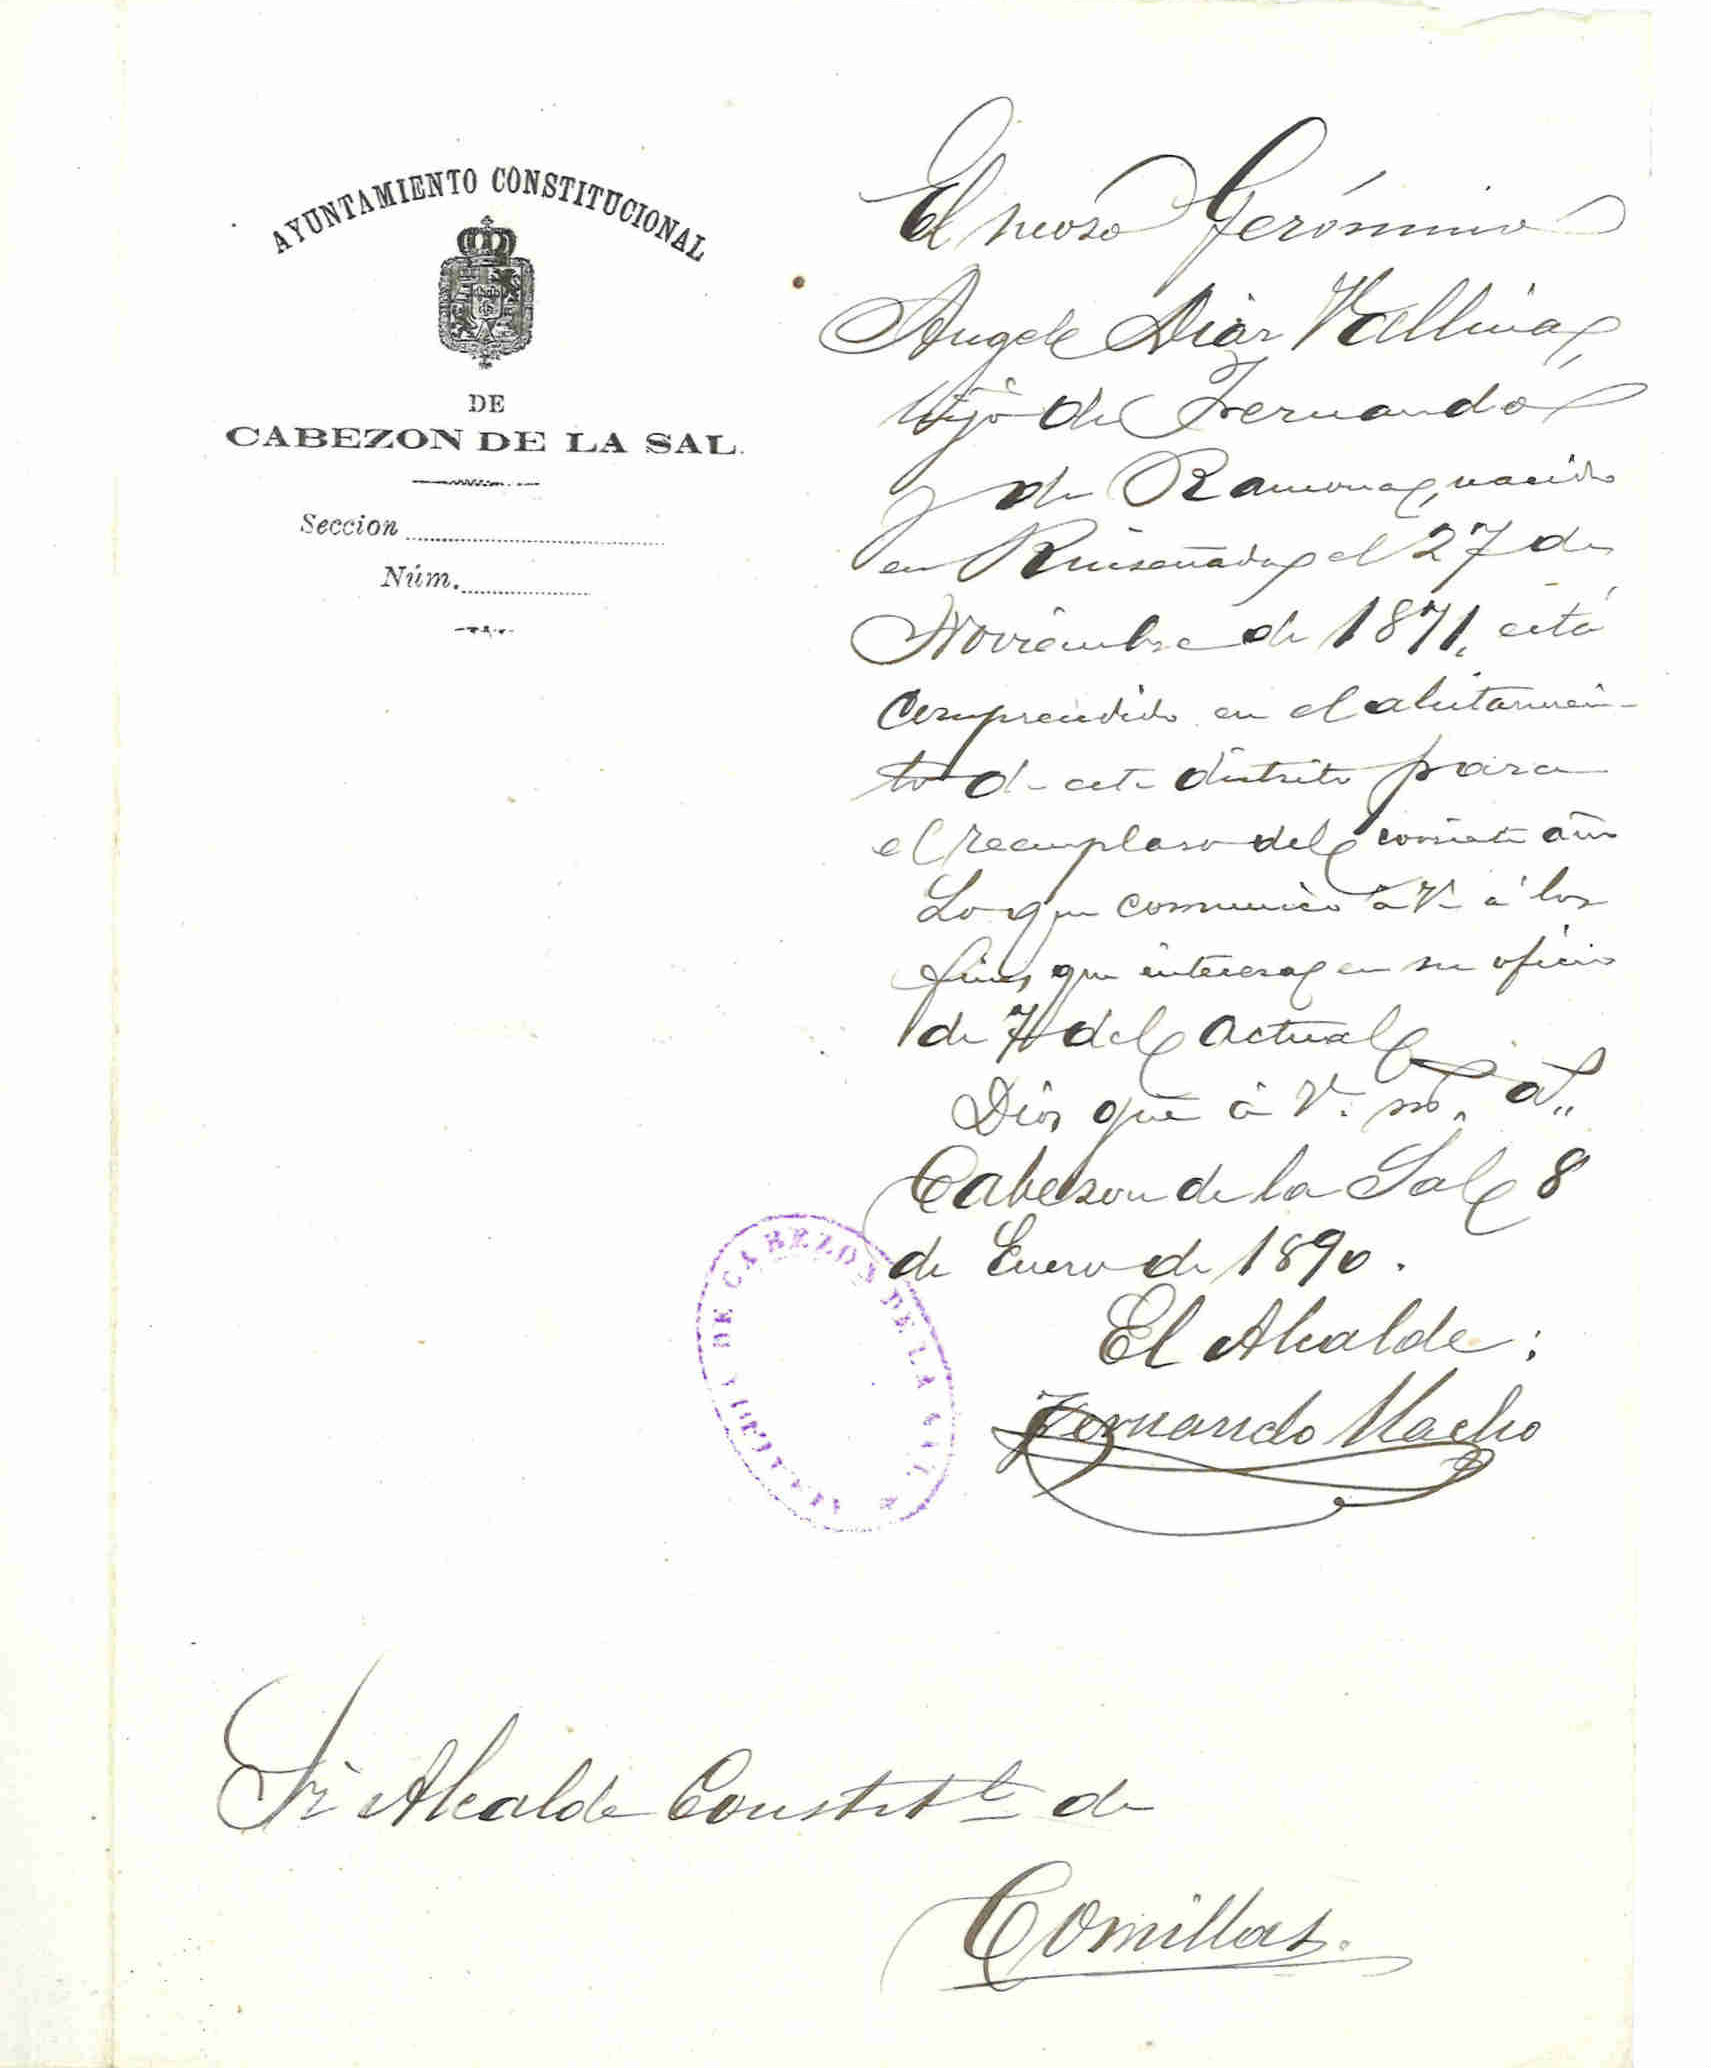 AYUNTAMIENTO CONSTITUCIONAL
DE
CABEZON DE LA SAL.
Seccion
Núm.
El moso Gerónimo
Angel Diaz Vallina,
hijo de Fernando
y de Ramona, nacido
en Ruiseñada el 27 de
Noviembre de 1871, está
comprendido en el alistamien-
to de este distrito para
el reemplaso del corriente año
Lo que comunico á V. á los
fines que interesa en su oficio
de 7 del actual
Dios gue á V. m. a.
Cabezon de la Sal 8
de Enero de 1890.
El Alcalde:
Fernando Macho
ALCALDIA DE CABEZON DE LA SAL
Sr Alcalde Constitl de
Comillas.